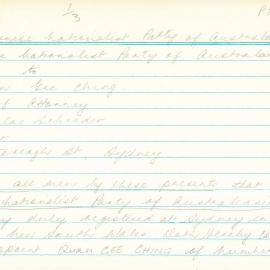 1/3
Nationalist Party of Australa
Nationalist Party of Austral
to
Gee Ching.
of Attorney
St, Sydney
all men by these presents that
Nationalist Party of Australasi
duly registered at Sydney in
New South Wales Do Hereby
point QUAN GEE CHING of Number